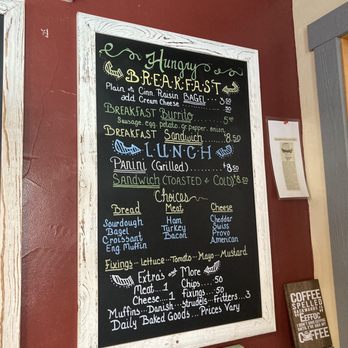 Hungry
BREAKFAST
Plain or Cinn. Raisin BAGEL
add Cream Cheese
BREAKFAST Burrito
Sausage, egg, potato, gr pepper, onion
BREAKFAST Sandwich $8.50
LUNCH
PANINI (Grilled) $8.50
SANDWICH (TOASTED & COLD) $8.50
Choices
Bread Meat Cheese
Sourdough Ham Cheddar
Bagel Turkey Swiss
Croissant Bacon Provo
Eng. Muffin American
Fixings - Lettuce - Tomato - Mayo - Mustard
Extra's and More
Meat... 1 Chips .50
Cheese .. 1 fixings .50
Muffins... Danish... strudels... Fritters.. 3
Daily Baked Goods... Prices Vary
COFFEE
SPELLED
BACKWARDS IS
EEFFOC
COFFEE